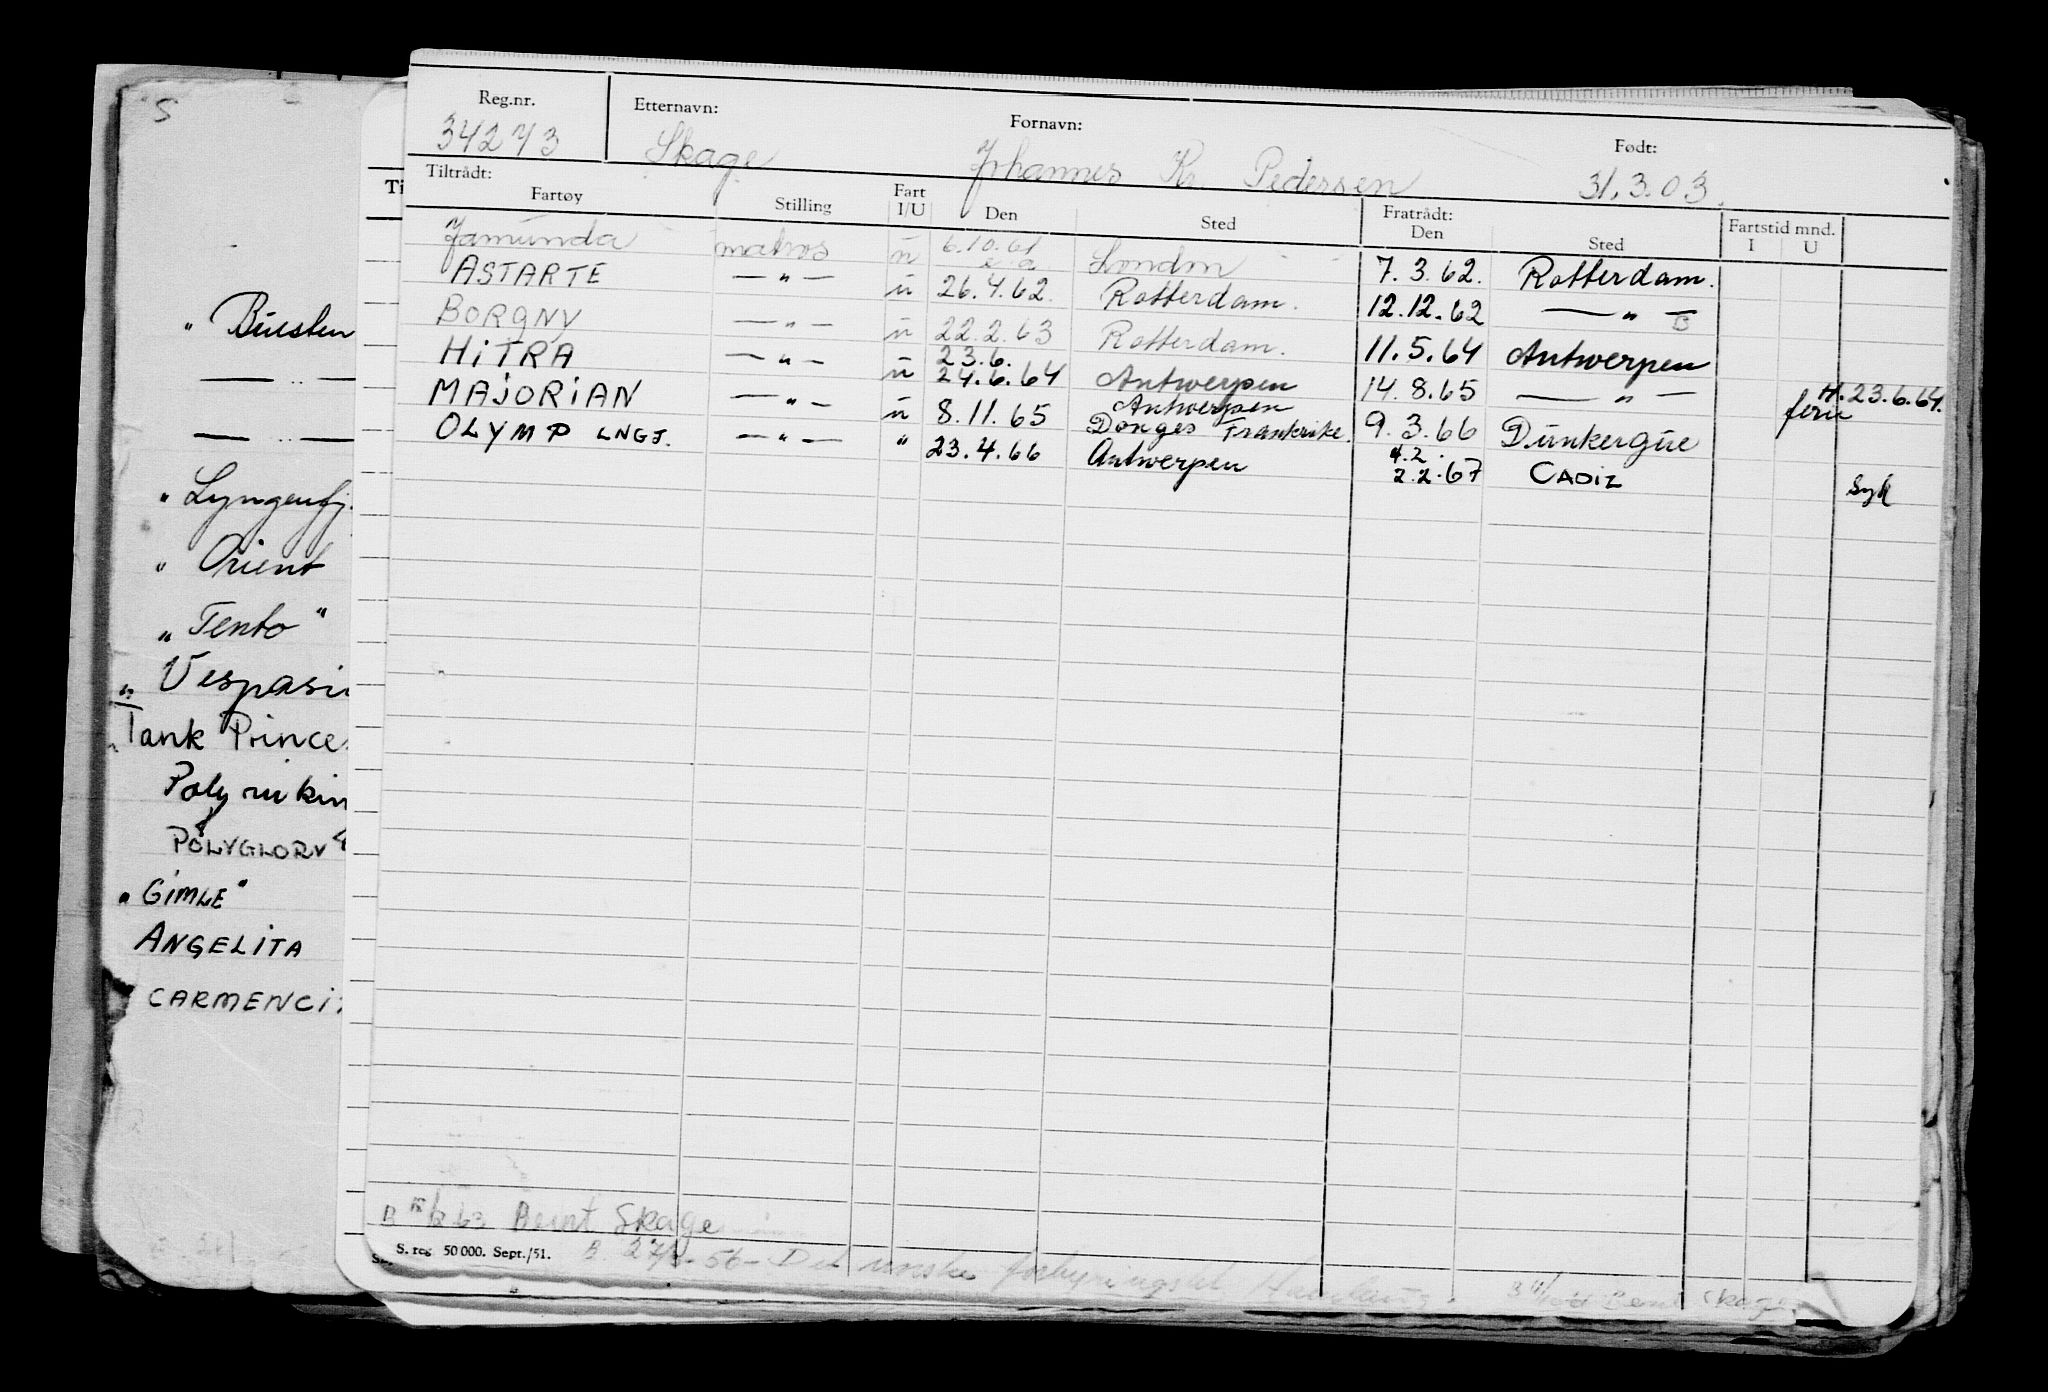 S
„ Buesten
— „ —
— „ —
„ Lyngenfj.
„ Orient
„ Tento "
„ Vespasi
Tank Prince
Poly
POLYGLORY
" GIMLE "
ANGELITA
CARMENCI
Reg.nr. Etternavn: Fornavn: Født:
34273 Skage Johannes Kr. Pedersen 31.3.03.
Tiltrådt: Fratrådt: Fartstid mnd.
Fartøy Stilling Fart I/U Den Sted Den Sted I U
Jamunda matros u 6.10.61 London 7.3.62. Rotterdam.
ASTARTE — „ — u 26.4.62. Rotterdam. 12.12.62 — „ —
BORGNY — „ — u 22.2.63 Rotterdam. 11.5.64 Antwerpen
23.6.
HITRA — „ — u 24.6.64 Antwerpen 14.8.65 — „ — ferie H.23.6.64.
Antwerpen
MAJORIAN — „ — u 8.11.65 Donges Frankrike. 9.3.66 Dunkerque
4.2.
OLYMP LNGJ. — „ — „ 23.4.66 Antwerpen 2.2.67 CADIZ Syk
B Bernt Skage
S. reg 50 000. Sept./51. B. 56 - Det norske
Bernt Skage